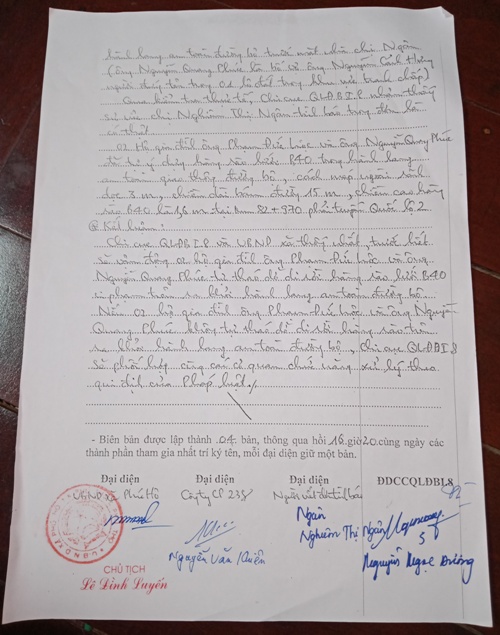 hành lang an toàn đường bộ trước mặt nhà chị Ngân
(ông Nguyễn Quang Phúc là bố vợ ông Nguyễn Cảnh Hưng
người đứng tên trong 01 lô đất trong khu vực tranh chấp)
Qua kiểm tra thực tế, Chi cục QLĐBI.8 nhận thấy
sự việc chị Nghiêm Thị Ngân trình báo trong đơn là
có thật.
02 Hộ gia đình ông Phạm Đức Lực và ông Nguyễn Quang Phúc
đã tự ý dựng hàng rào lưới B40 trong hành lang
an toàn giao thông đường bộ, cách mép ngoài rãnh
dọc 3 m, chiều dài bám đường 15 m, chiều cao hàng
rào B40 là 1,6 m tại km 82+970 phải tuyến Quốc lộ 2
* Kết luận:
Chi cục QLĐBI.8 và UBND xã thống nhất, trước hết
sẽ vận động 02 hộ gia đình ông Phạm Đức Lực và ông
Nguyễn Quang Phúc tự tháo dỡ di rời hàng rào lưới B40
vi phạm trên ra khỏi hành lang an toàn đường bộ.
Nếu 02 hộ gia đình ông Phạm Đức Lực và ông Nguyễn
Quang Phúc không tự tháo dỡ di rời hàng rào trên
ra khỏi hành lang an toàn đường bộ, chi cục QLĐBI.8
sẽ phối hợp cùng các cơ quan chức năng xử lý theo
qui định của Pháp luật./.
- Biên bản được lập thành 04 bản, thông qua hồi 16 giờ 20 cùng ngày các
thành phần tham gia nhất trí ký tên, mỗi đại diện giữ một bản.
Đại diện Đại diện Đại diện ĐDCCQLĐBI.8
UBND xã Phú Hộ Công ty CP 238 Người viết đơn trình báo
Ngân
Nghiêm Thị Ngân
Nguyễn Văn Khiên
Nguyễn Ngọc Đường
CHỦ TỊCH
Lê Đình Luyến